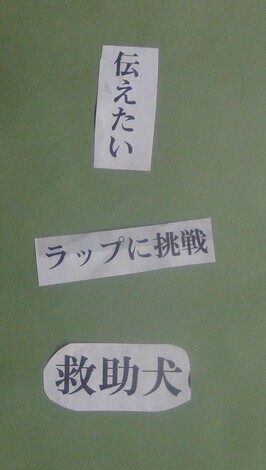 伝えたい
ラップに挑戦
救助犬